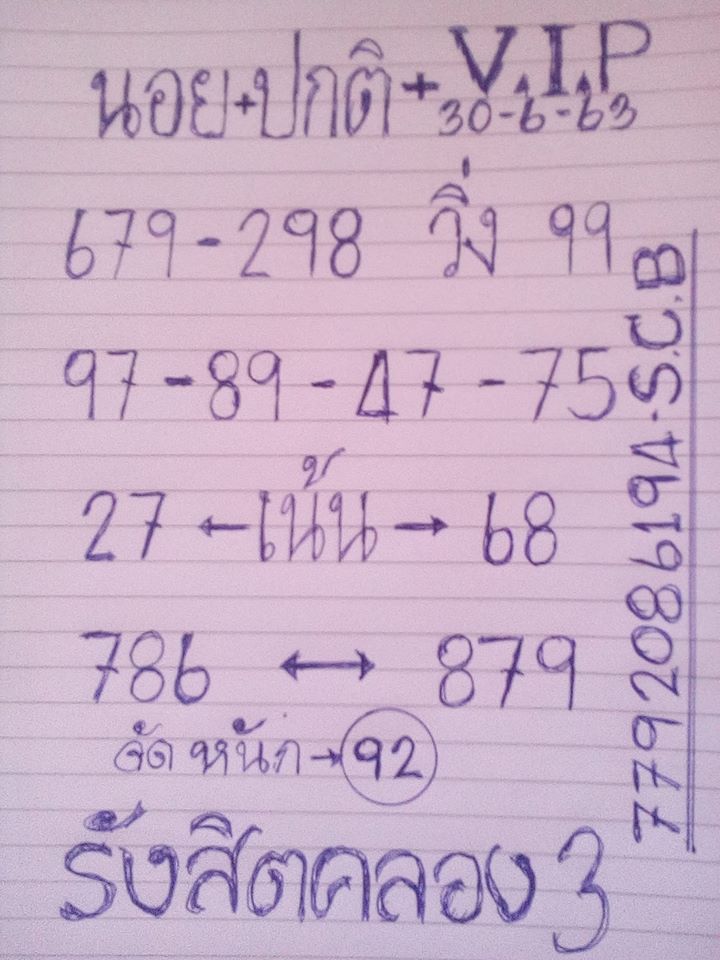 นอย+ปกติ+V.I.P
30-6-63
679-298 วิ่ง 99
97-89-47-75
27 ←เน้น→ 68
786 ↔ 879
จัดหนัก→92
รังสิตคลอง 3
7792086194-S.C.B